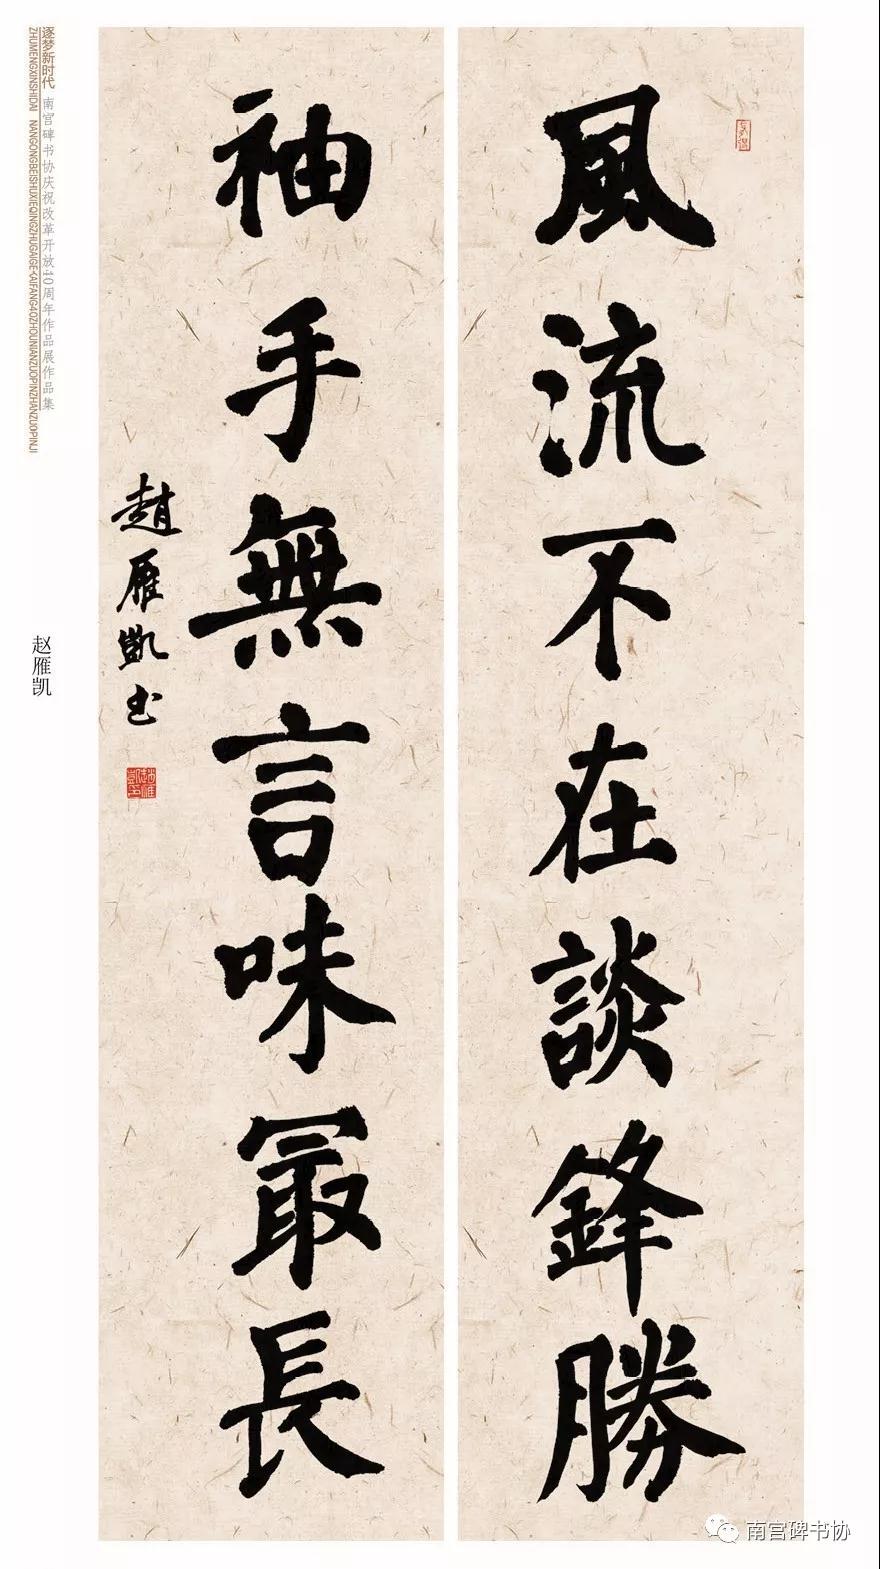 風流不在談鋒勝
袖手無言味冣長
趙雁凱书
赵雁凯
逐梦新时代 南宫碑书协庆祝改革开放40周年作品展作品集
ZHUMENGXINSHIDAI NANGONGBEISHUXIEQINGZHUGAIGEKAIFANG40ZHOUNIANZUOPINZHANZUOPINJI
南宫碑书协